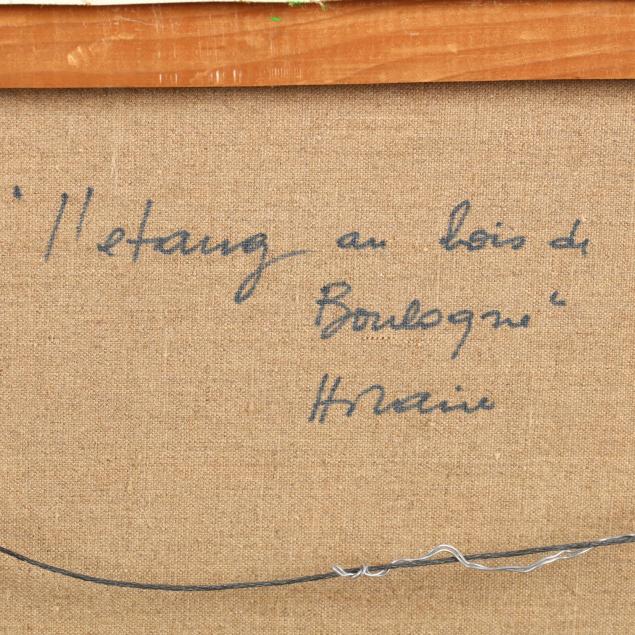 "l'etang au bois de
Boulogne"